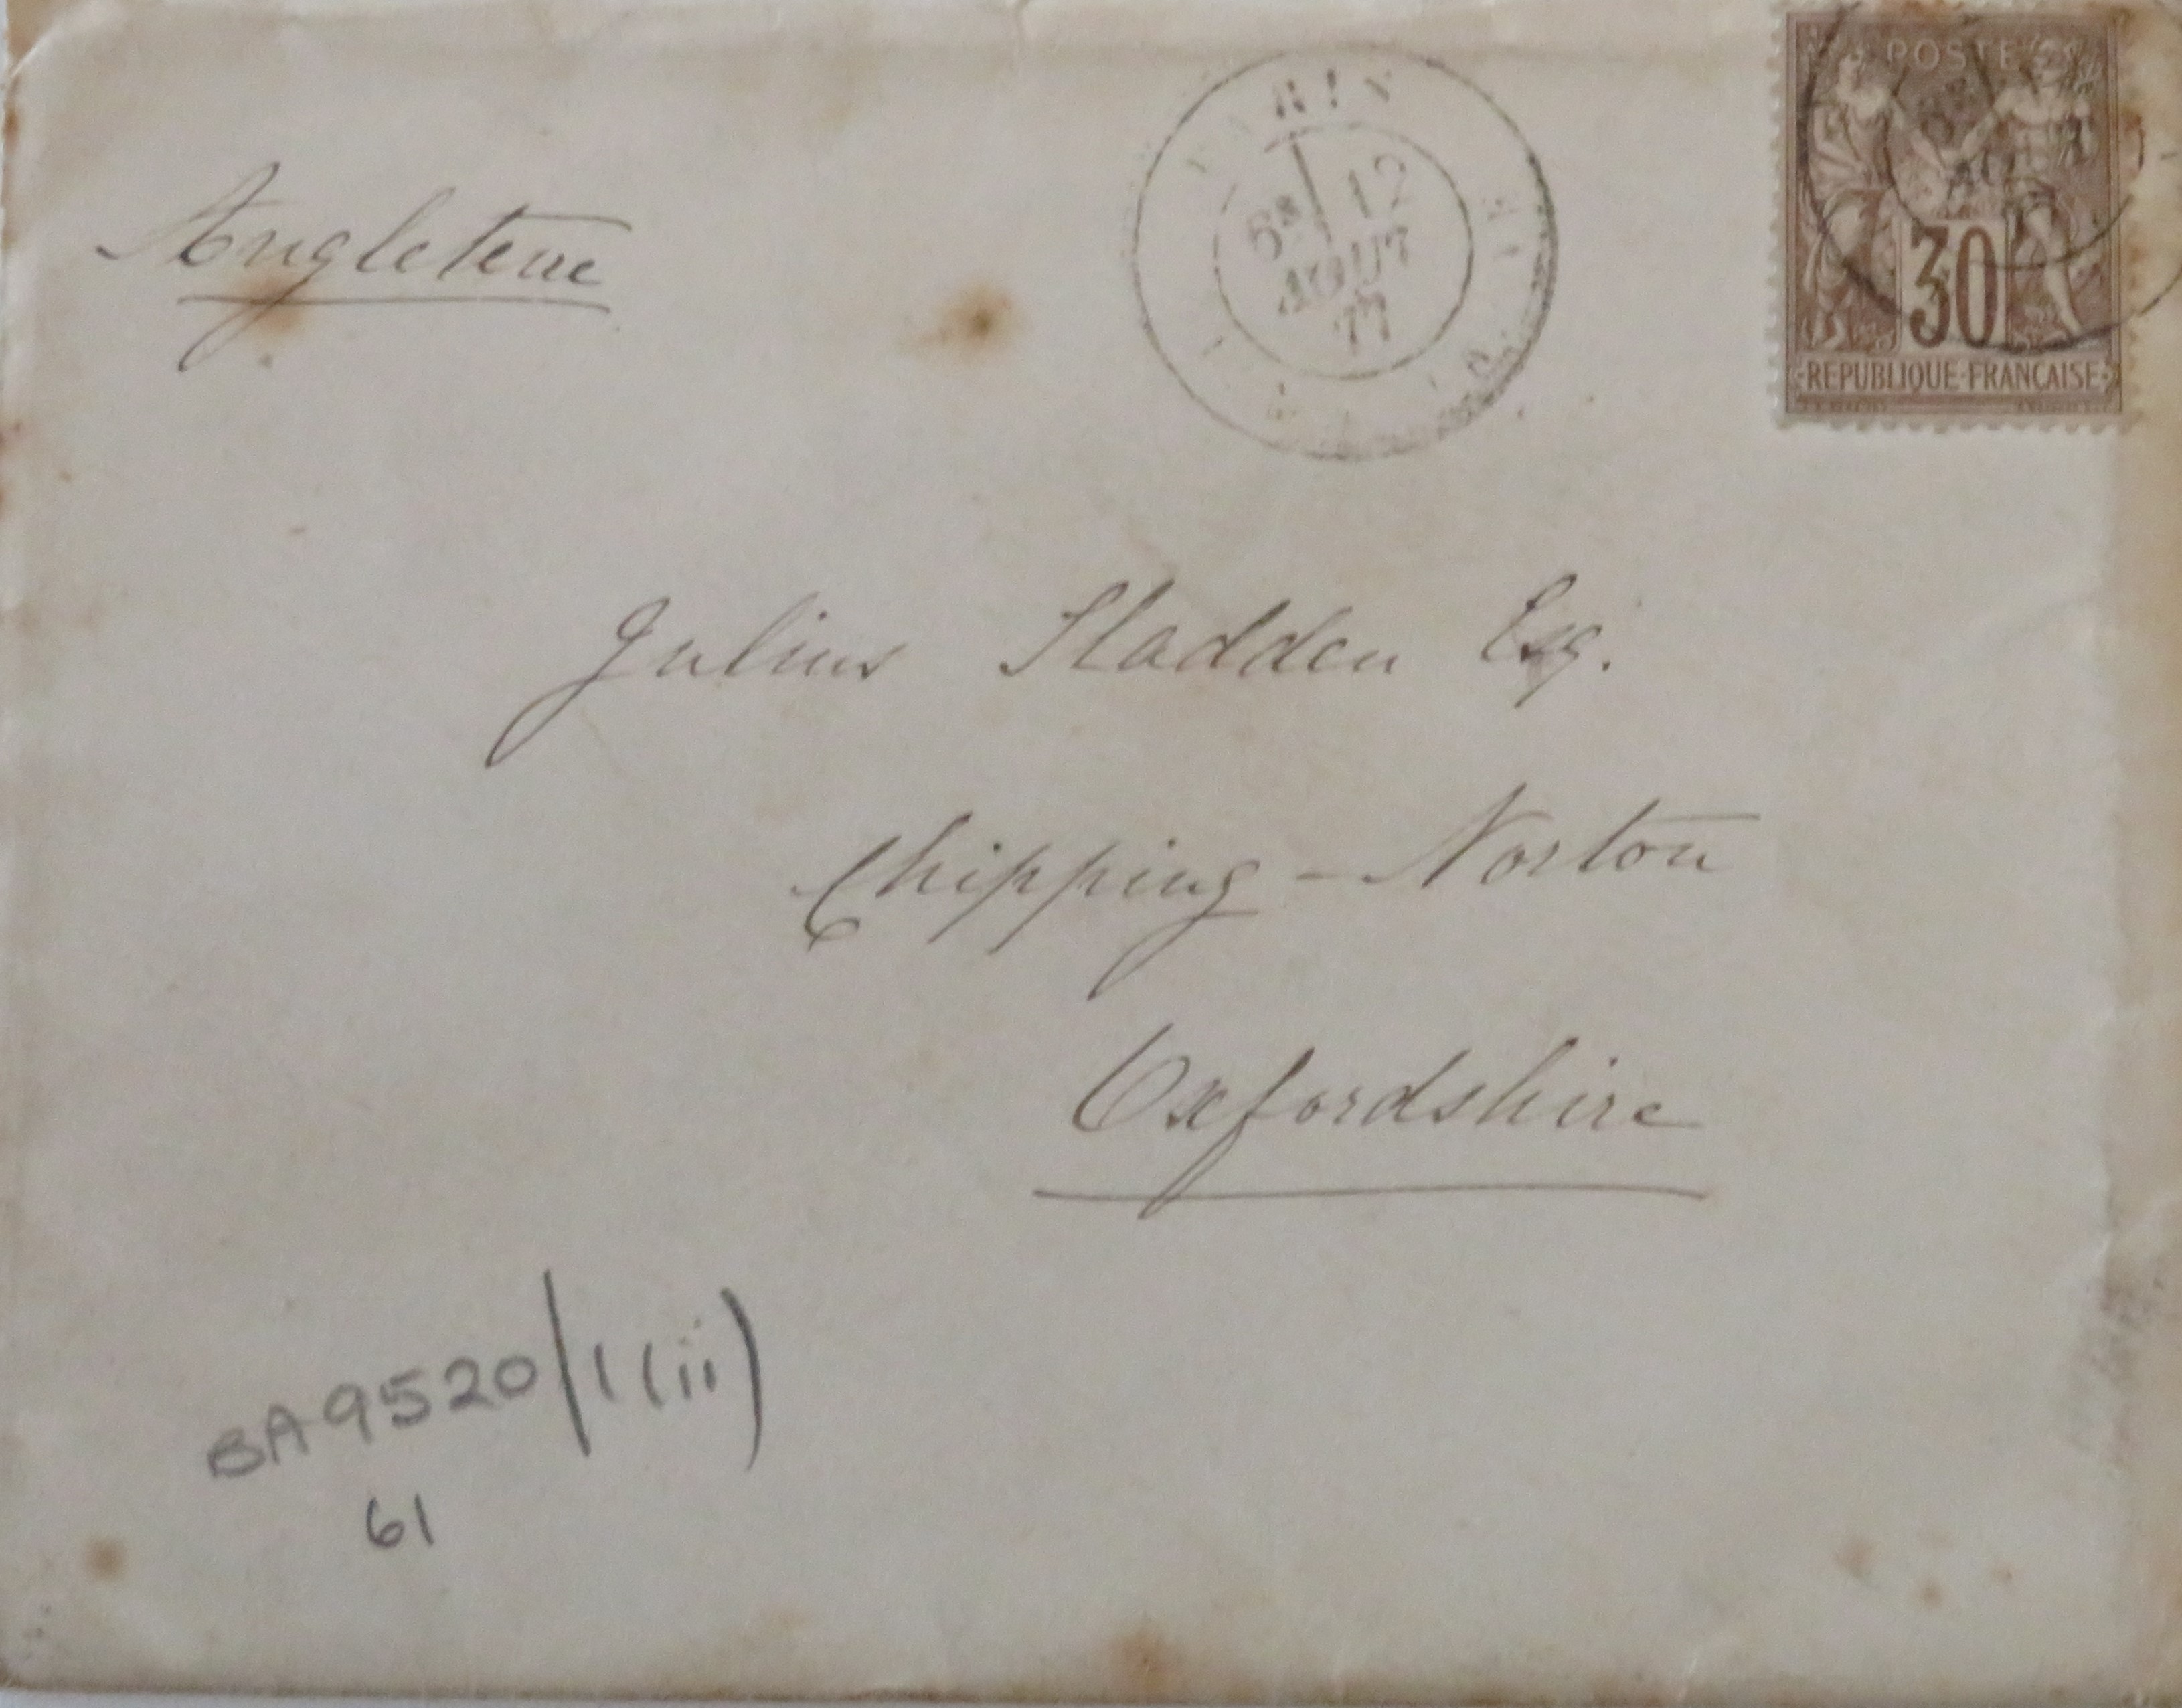 Angleterre
PARIS
5E 12
AOUT
77
POSTE
30
REPUBLIQUE FRANCAISE
Julius Sladden Esq.
Chipping - Norton
Oxfordshire
BA9520/1(ii)
61